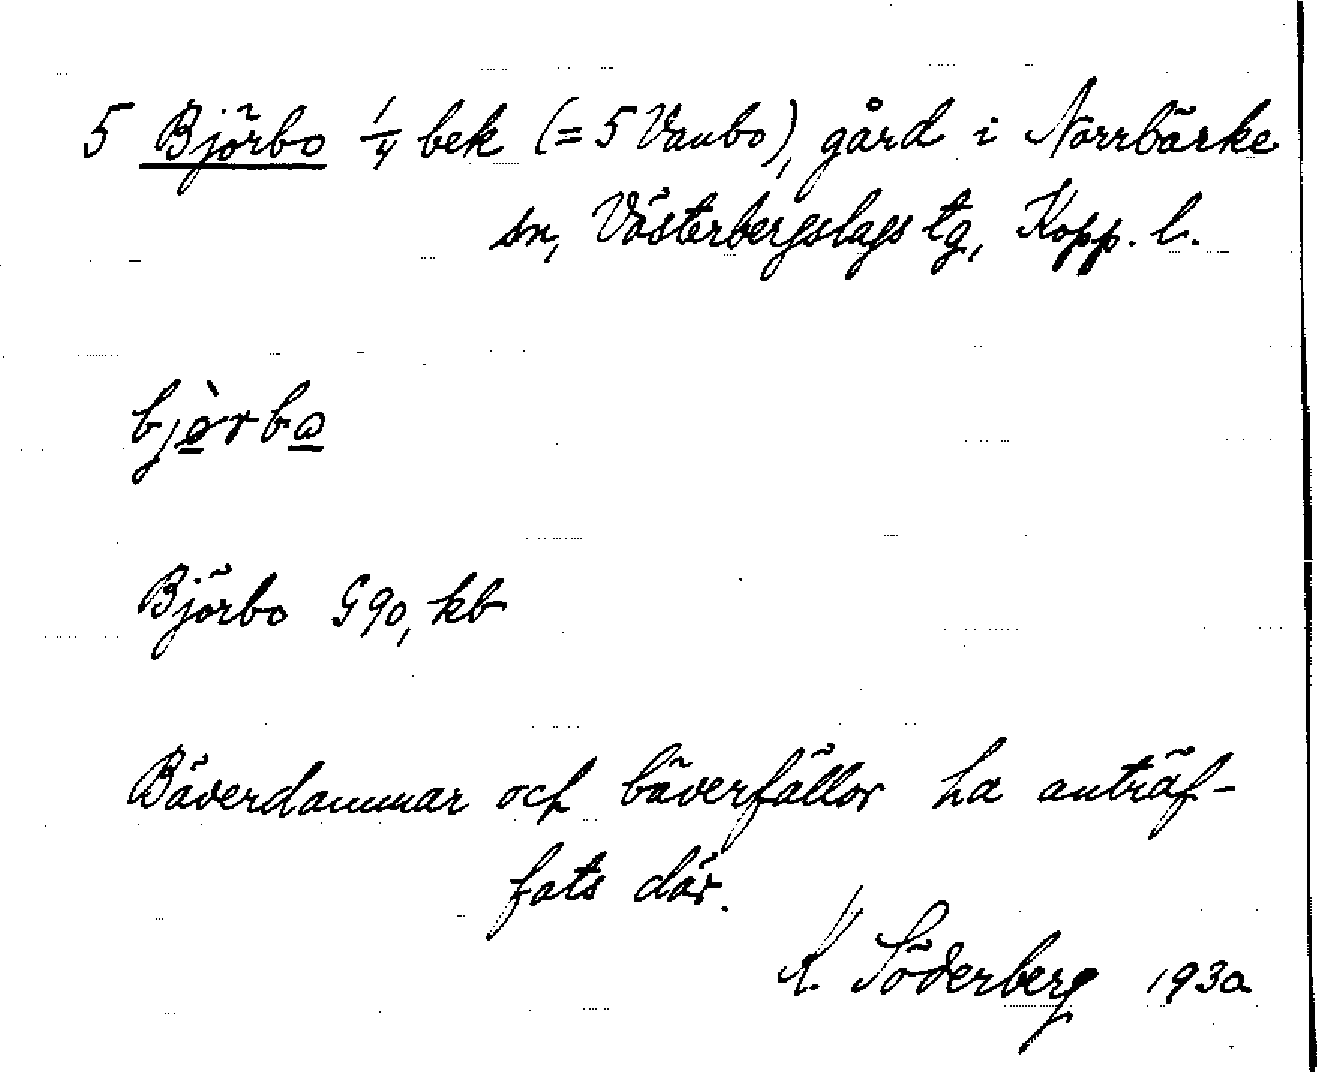 5 Björbo 1/4 bek (= 5 Vanbo), gård i Norrbärke
sn, Västerbergslags tg, Kopp. l.
bjòrbo
Björbo G90, kb
Bäverdammar och bäverfällor ha anträf-
fats där.
K. Söderberg 1930